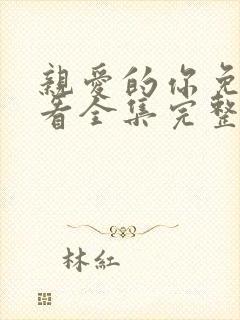 親愛的你免
看全集完整
林紅